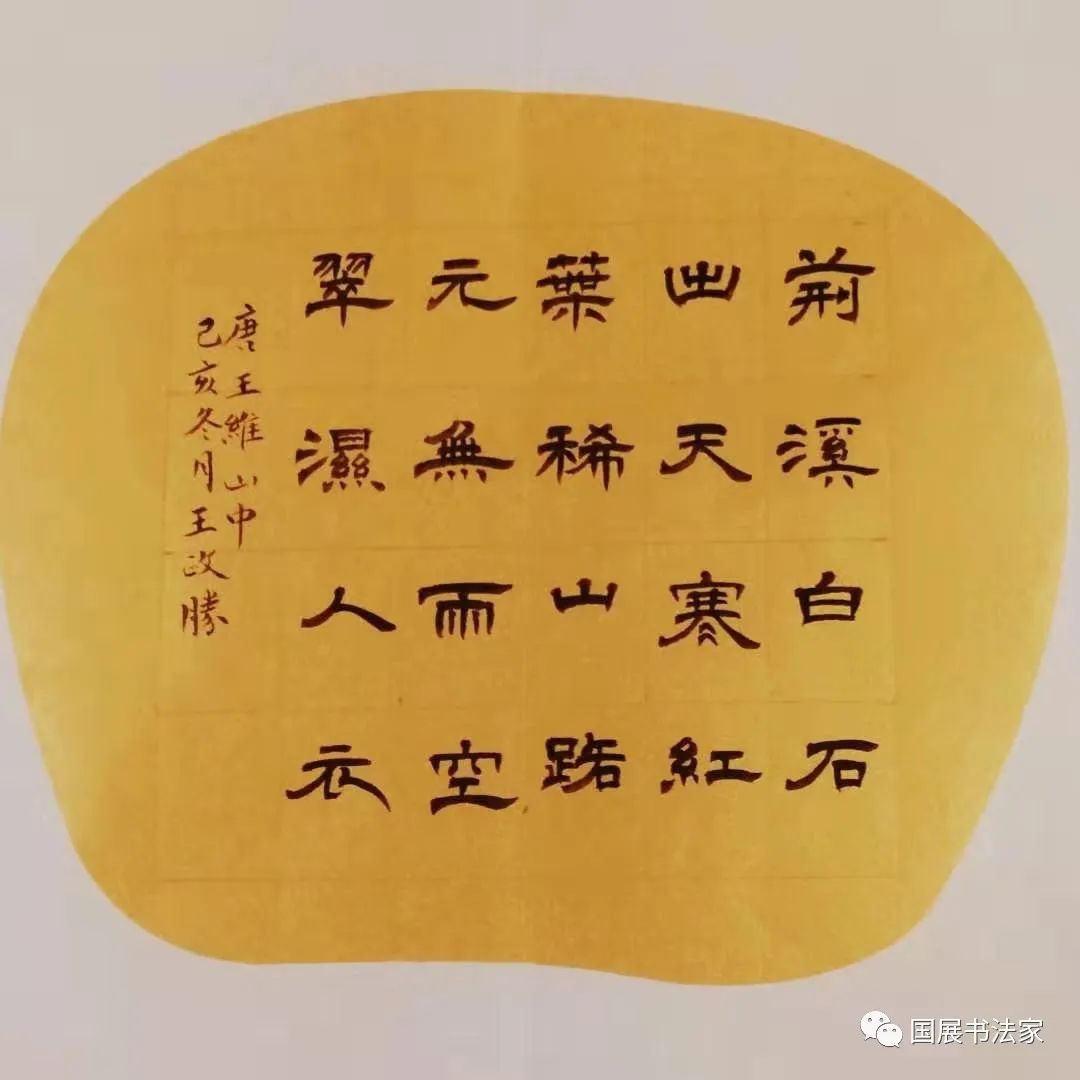 荆溪白石
出天寒紅
葉稀山路
元無雨空
翠濕人衣
唐王維山中
己亥冬月王政勝
国展书法家